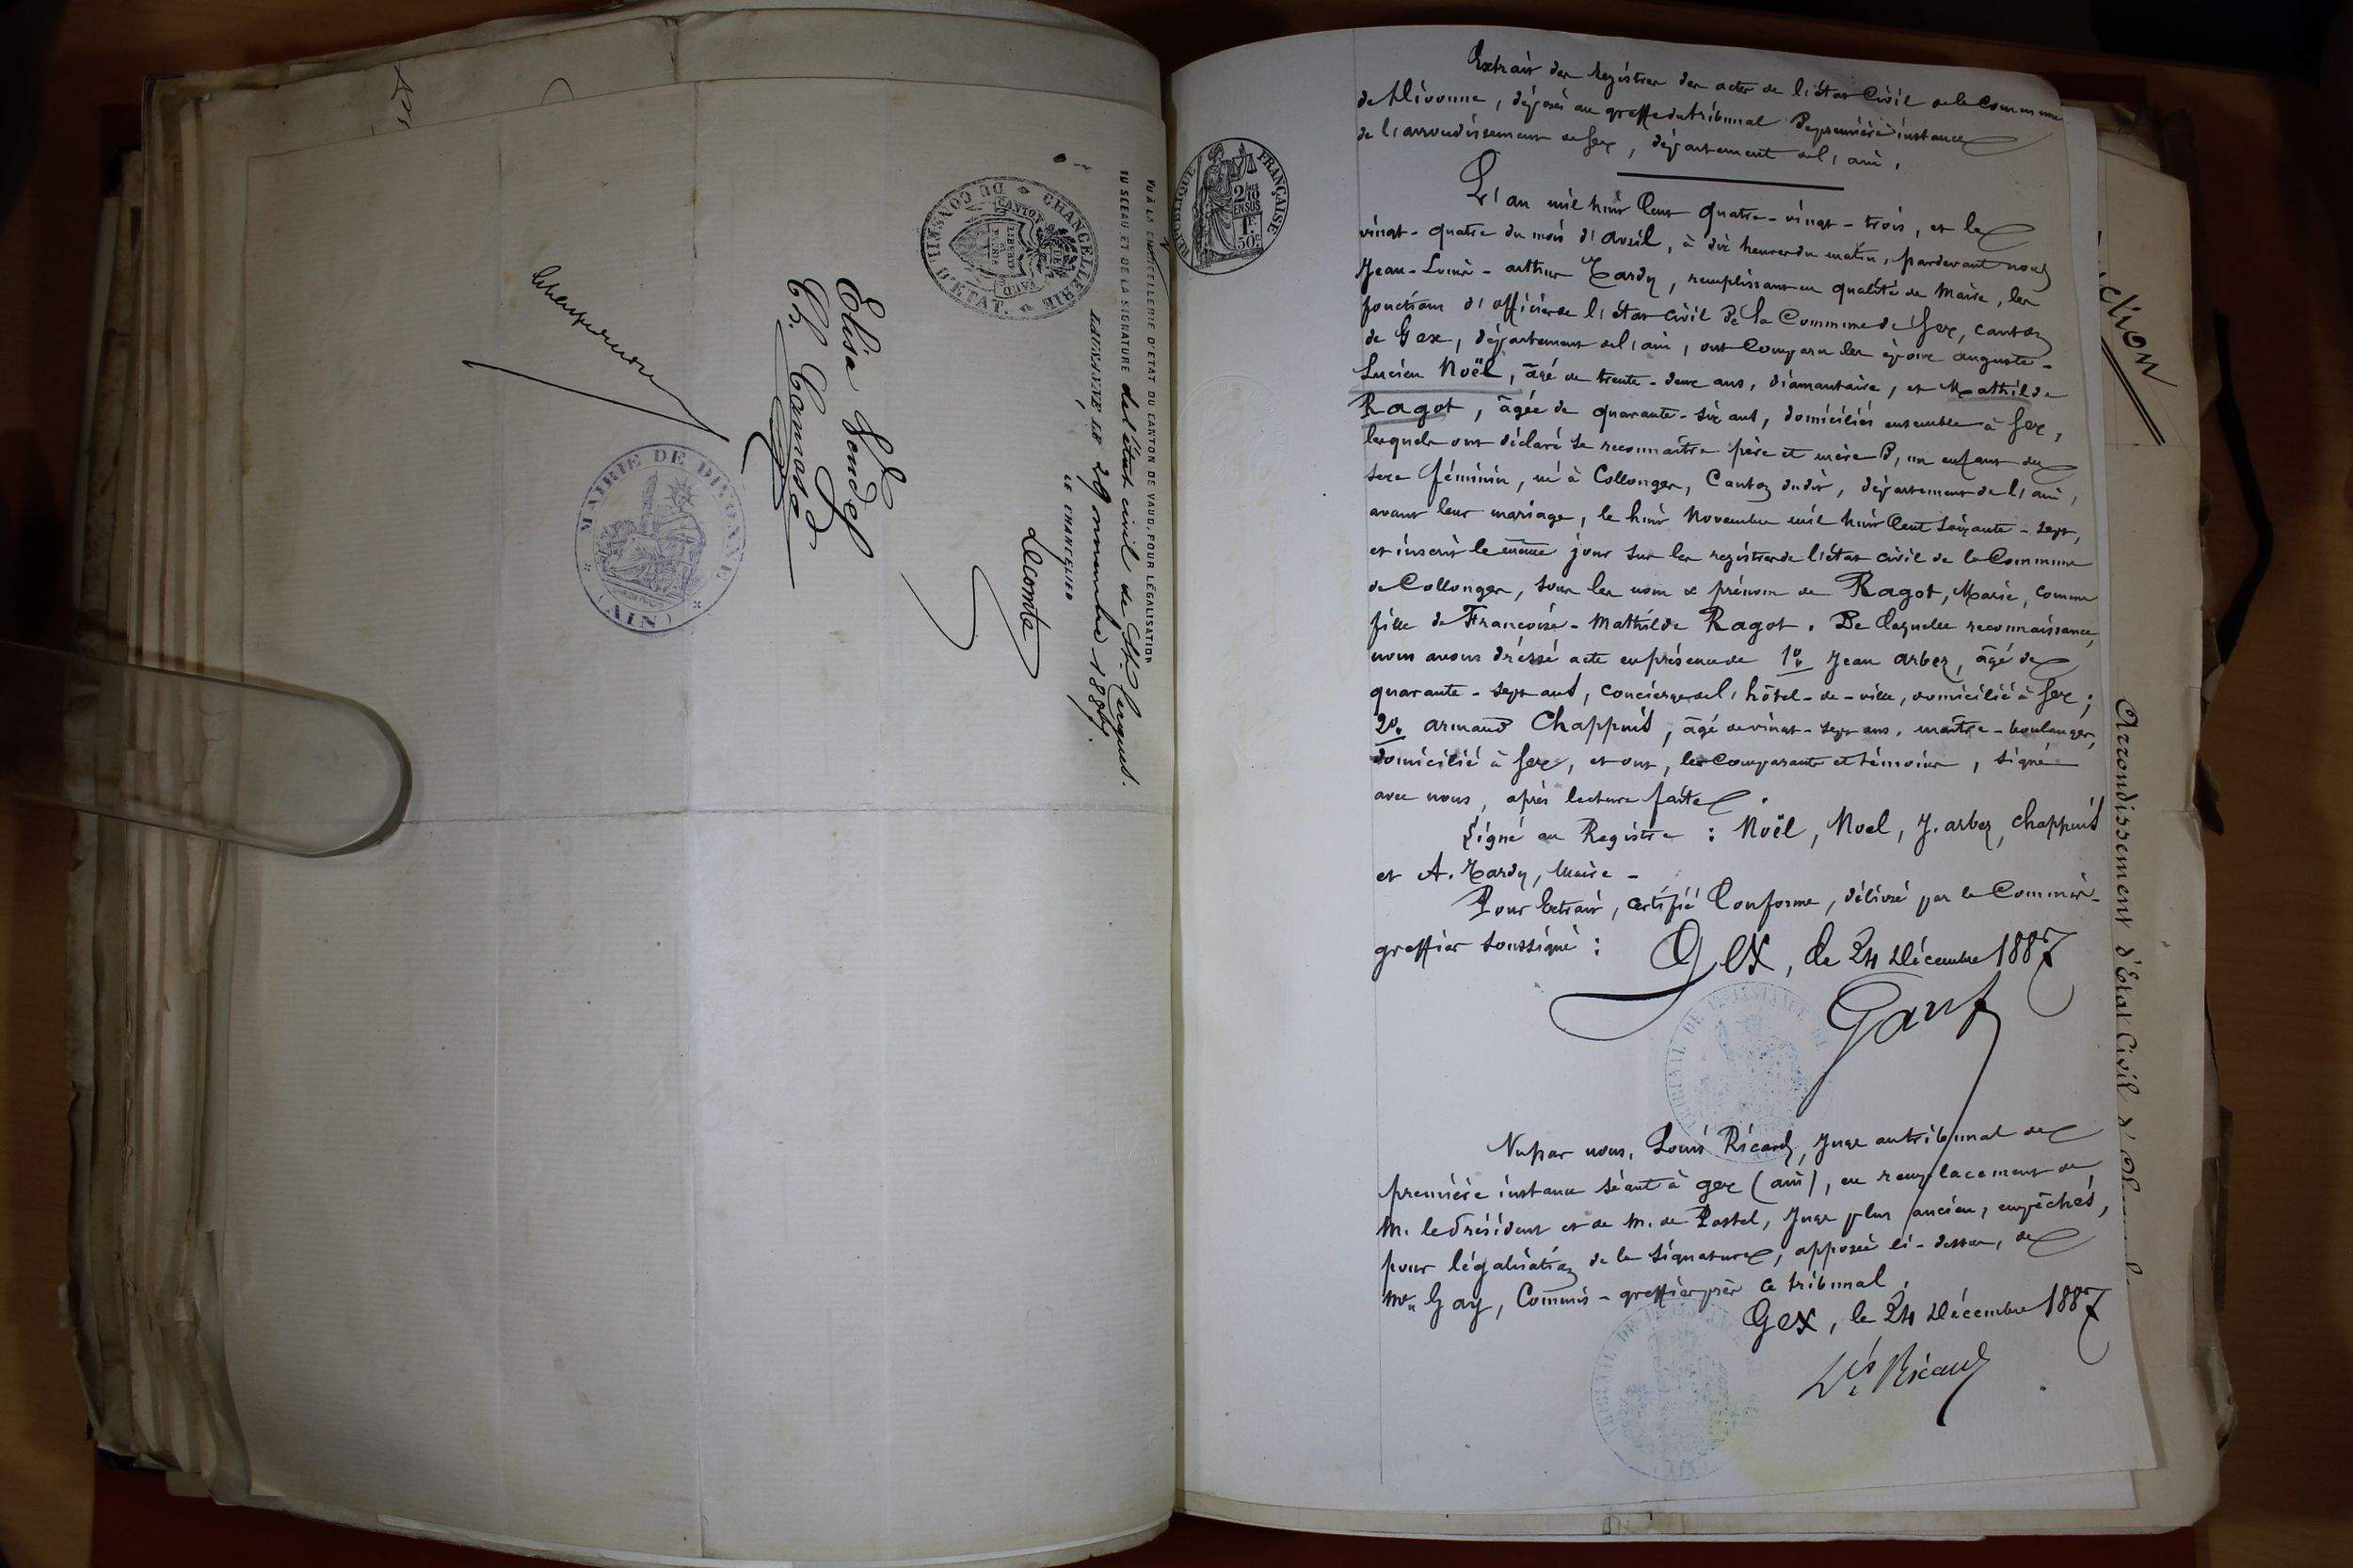 VU À LA CHANCELLERIE D'ETAT DU CANTON DE VAUD, POUR LÉGALISATION
DU SCEAU ET DE LA SIGNATURE de l'état civil de St. Cergues.
LAUSANNE, LE 29 novembre 1887.
LE CHANCELIER
Lecomte
CHANCELLERIE DU CONSEIL D'ETAT.
CANTON DE VAUD
LIBERTÉ ET PATRIE
Elisa
MAIRIE DE DIVONNE
(AIN)
RÉPUBLIQUE FRANÇAISE
2/10
EN SUS
1F.
50c
Extrait des registres des actes de l'état Civil de la Commune
de Divonne, déposés au greffe du tribunal de première instance
de l'arrondissement de Gex, département de l'ain.
L'an mil huit Cent quatre-vingt-trois, et le
vingt-quatre du mois d'avril, à dix heures du matin, pardevant nous
Jean-Louis-arthur Tardy, remplissant en qualité de Maire, les
fonctions d'officier de l'état Civil de la Commune de Gex, canton
de Gex, département de l'ain, ont Comparu les époux auguste-
Lucien Noël, âgé de trente-deux ans, diamantaire, et Mathilde
Ragot, âgée de quarante-six ans, domiciliés ensemble à Gex,
lesquels ont déclaré se reconnaître père et mère d'un enfant du
sexe féminin, né à Collonges, Canton dudit, département de l'ain,
avant leur mariage, le huit Novembre mil huit Cent soixante-sept,
et inscrit le même jour sur les registres de l'état civil de la Commune
de Collonges, sous les nom & prénom de Ragot, Marie, comme
fille de Françoise-Mathilde Ragot. De laquelle reconnaissance,
nous avons dressé acte en présence de 1° Jean Arbez, âgé de
quarante-sept ans, concierge de l'hôtel-de-ville, domicilié à Gex;
2° armand Chappuis, âgé de vingt-sept ans, maître-boulanger,
domicilié à Gex, et ont, les Comparants et témoins, signé
avec nous, après lecture faite.
Signé au Registre : Noël, Noel, J. arbez, Chappuis
et A. Tardy, Maire -
Pour Extrait, certifié Conforme, délivré par le Commis-
greffier soussigné :
Gex, le 24 Décembre 1887
Vu par nous, Louis Ricard, Juge au tribunal de
première instance séant à gex (ain), en remplacement de
M. le Président et de M. de Postel, Juge plus ancien, empêchés,
pour légalisation de la signature, apposée ci-dessus, de
Me Gay, Commis-greffier près ce tribunal.
Gex, le 24 Décembre 1887
Ls Ricard
Arrondissement d'Etat Civil